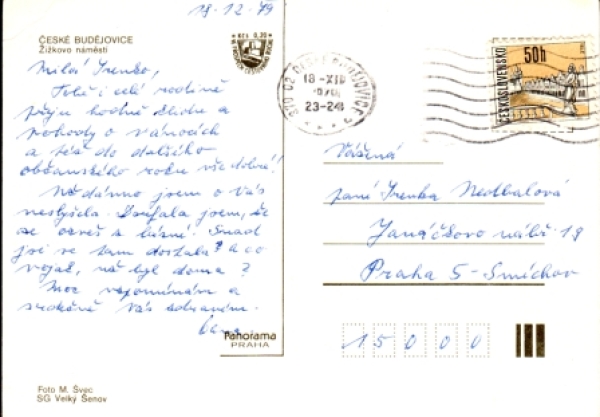 18.12.79
ČESKÉ BUDĚJOVICE
Žižkovo náměstí
Kčs 0,30
Milá Irenko,
Tobě i celé rodině
přeju hodně klidu a
pohody o Vánocích
a též do dalšího
občanského roku vše dobré!
Nedávno jsem o Vás
neslyšela. Doufala jsem, že
se ozveš a
jsi ve tam dostala? a co
vojáč, už byl doma?
Moc vzpomínám a
srdečně Vás zdravím.
Panorama
PRAHA
Foto M. Švec
SG Velký Šenov
ČESKÉ BUDĚJOVICE
18.-XII
23-24
ČESKOSLOVENSKO
50h
Vážená
paní Irenka Nedbalová
Janáčkovo nábř. 19
Praha 5-Smíchov
15000